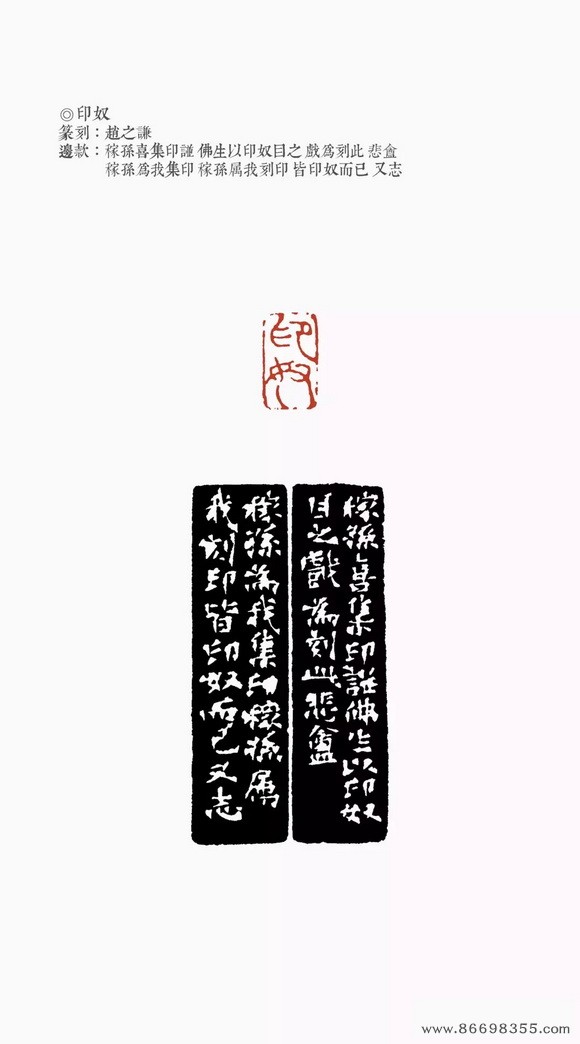 ◎印奴
篆刻：趙之謙
邊款：稼孫喜集印謹 佛生以印奴目之 戲爲刻此 悲盦
稼孫爲我集印 稼孫属我刻印 皆印奴而已 又志
印奴
稼孫喜集印謹佛生以印奴
目之戲爲刻此悲盦
稼孫爲我集印稼孫属
我刻印皆印奴而已又志
www.86698355.com